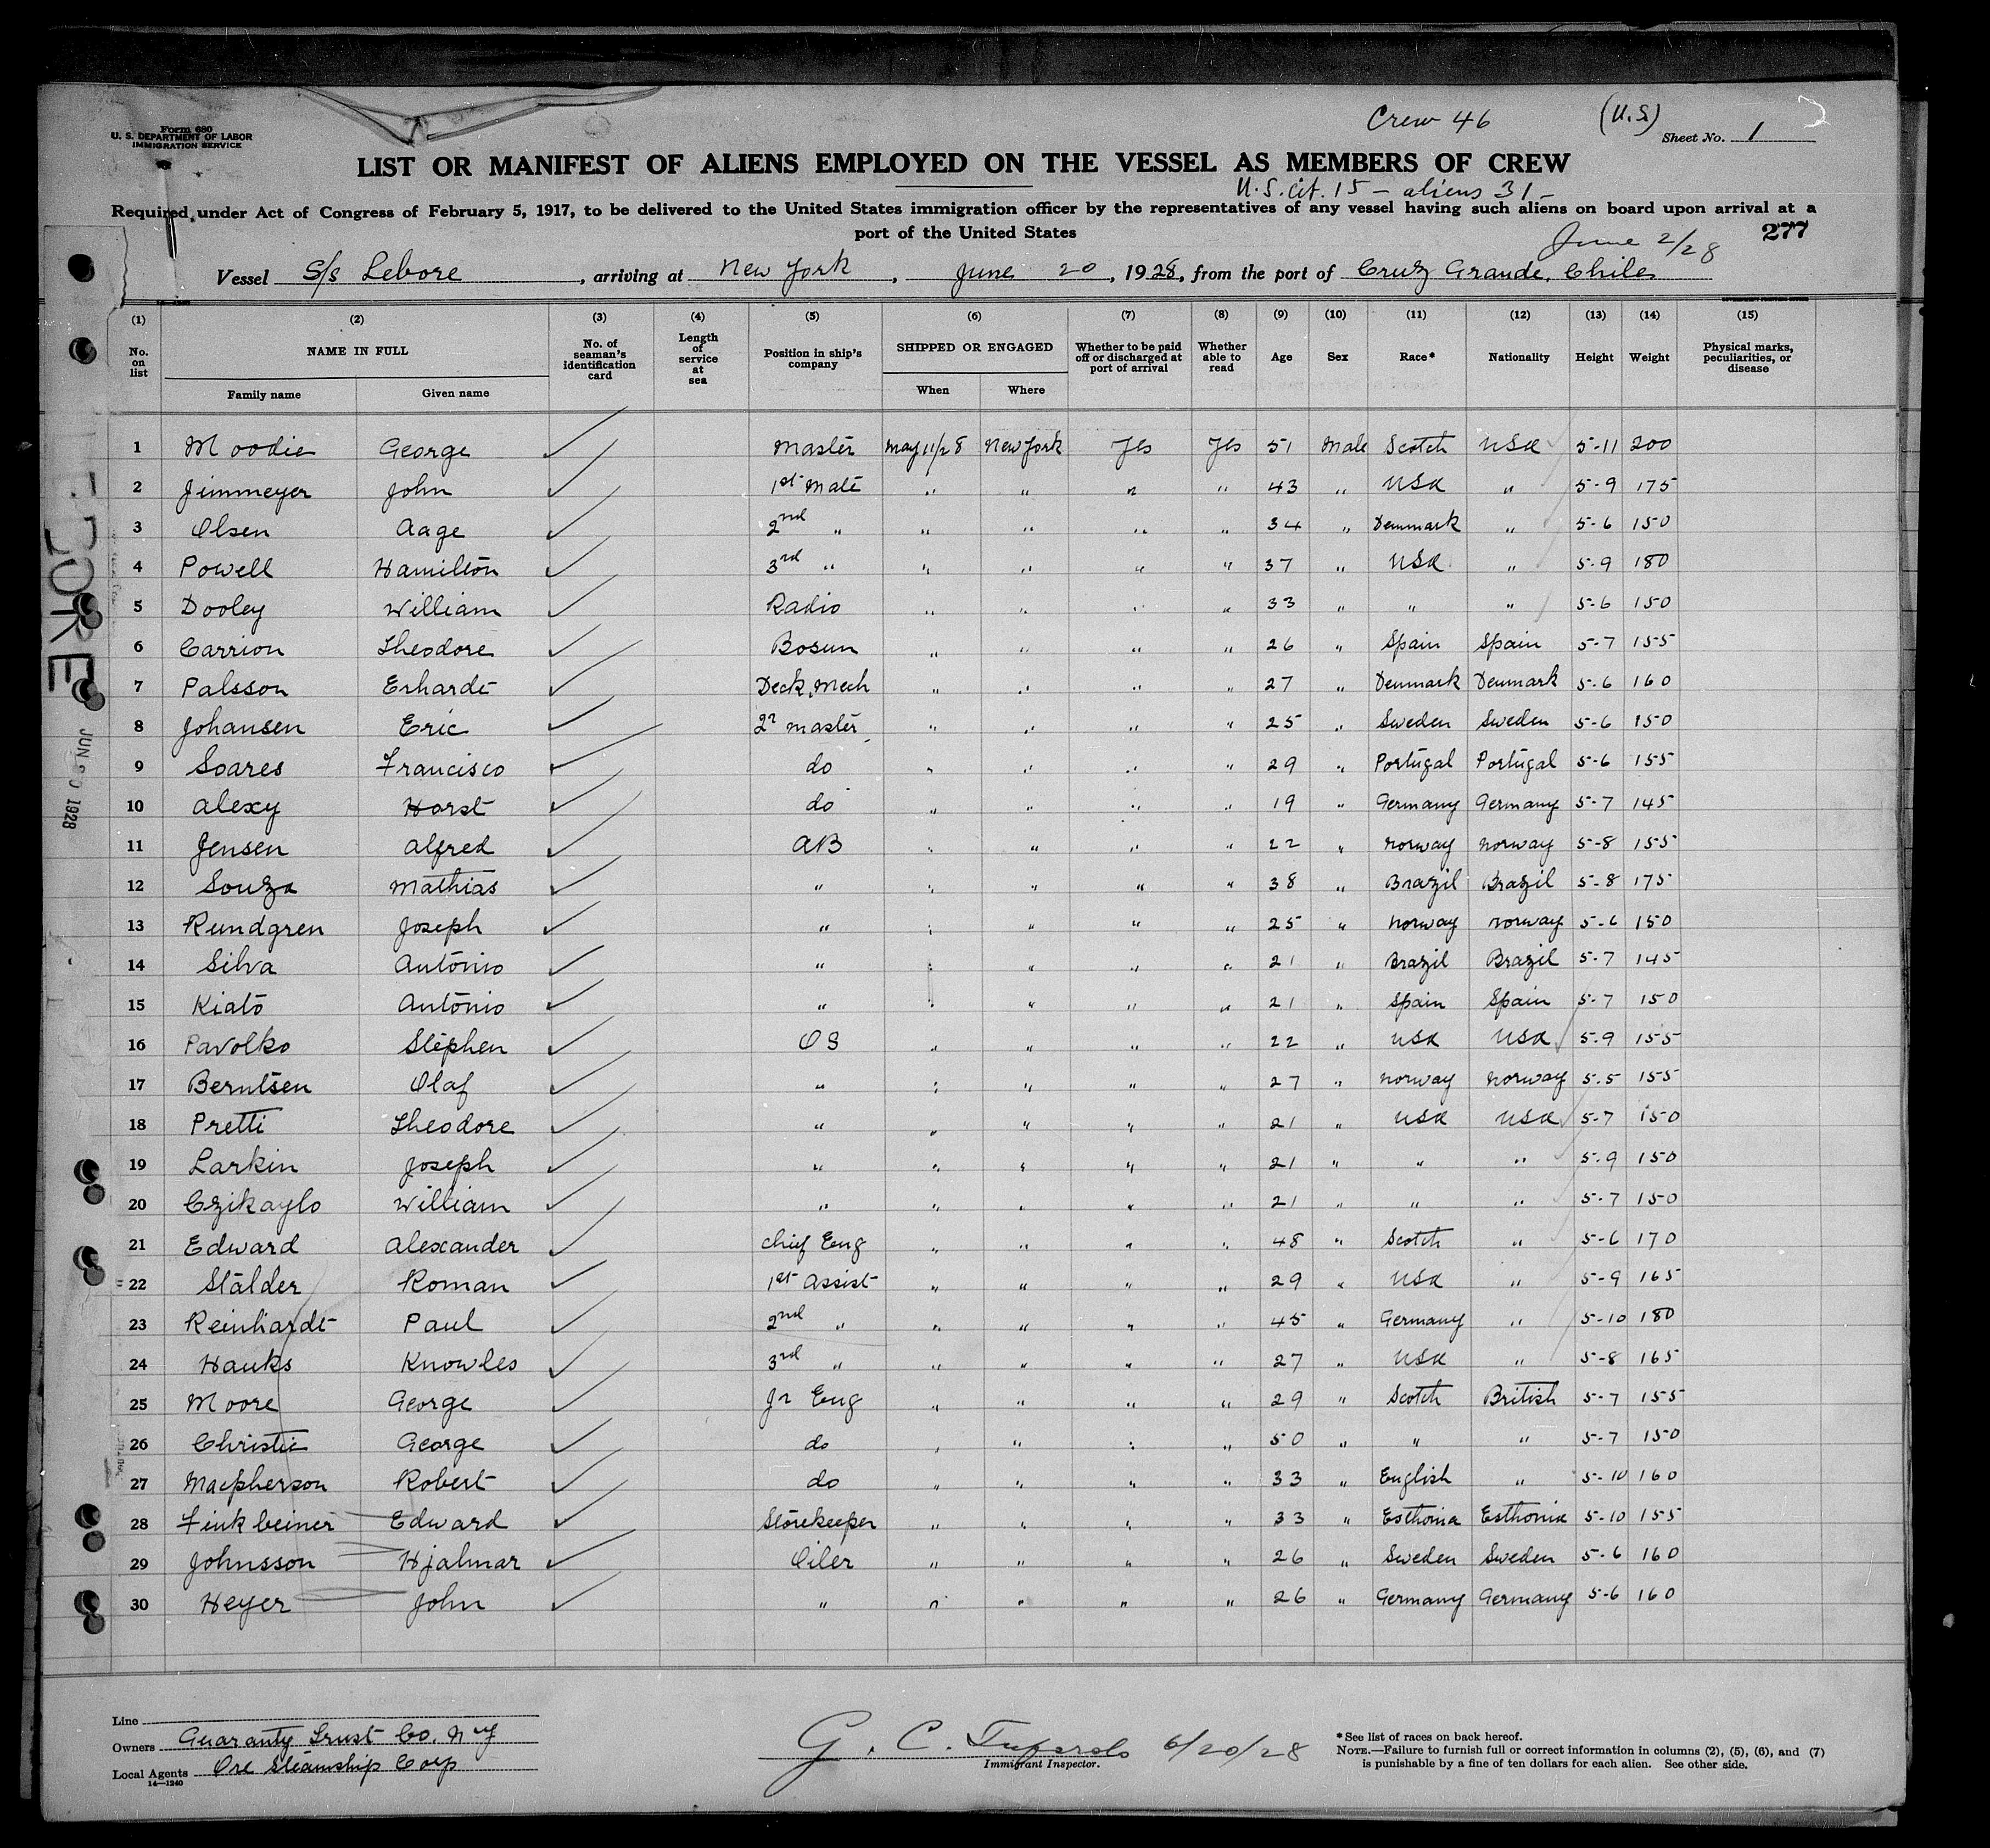 Form 680
U. S. DEPARTMENT OF LABOR
IMMIGRATION SERVICE
Crew 46
(U.S)
Sheet No. 1
LIST OR MANIFEST OF ALIENS EMPLOYED ON THE VESSEL AS MEMBERS OF CREW
U.S. Cit. 15 – aliens 31 –
Required under Act of Congress of February 5, 1917, to be delivered to the United States immigration officer by the representatives of any vessel having such aliens on board upon arrival at a
port of the United States
277
June 2/28
Vessel S/s Lebore, arriving at New York, June 20, 1928, from the port of Cruz Grande, Chile
(1) (2) (3) (4) (5) (6) (7) (8) (9) (10) (11) (12) (13) (14) (15)
No. on list NAME IN FULL No. of seaman's identification card Length of service at sea Position in ship's company SHIPPED OR ENGAGED Whether to be paid off or discharged at port of arrival Whether able to read Age Sex Race* Nationality Height Weight Physical marks, peculiarities, or disease
Family name Given name When Where
1 Moodie George ✓ Master May 11/28 New York Yes Yes 51 Male Scotch USA 5-11 200
2 Jimmeyer John ✓ 1st Mate " " " " 43 " USA " 5-9 175
3 Olsen Aage ✓ 2nd " " " " " 34 " Denmark " 5-6 150
4 Powell Hamilton ✓ 3rd " " " " " 37 " USA " 5-9 180
5 Dooley William ✓ Radio " " " " 33 " " " 5-6 150
6 Carrion Theodore ✓ Bosun " " " " 26 " Spain Spain 5-7 155
7 Palsson Erhardt ✓ Deck Mech " " " " 27 " Denmark Denmark 5-6 160
8 Johansen Eric ✓ 2r master " " " " 25 " Sweden Sweden 5-6 150
9 Soares Francisco ✓ do " " " " 29 " Portugal Portugal 5-6 155
10 Alexy Horst ✓ do " " " " 19 " Germany Germany 5-7 145
11 Jensen Alfred ✓ AB " " " " 22 " Norway Norway 5-8 155
12 Souza Mathias ✓ " " " " " 38 " Brazil Brazil 5-8 175
13 Rundgren Joseph ✓ " " " " " 25 " Norway Norway 5-6 150
14 Silva Antonio ✓ " " " " " 21 " Brazil Brazil 5-7 145
15 Kiato Antonio ✓ " " " " " 21 " Spain Spain 5-7 150
16 Pavolko Stephen ✓ OS " " " " 22 " USA USA 5-9 155
17 Berntsen Olaf ✓ " " " " " 27 " Norway Norway 5-5 155
18 Pretti Theodore ✓ " " " " " 21 " USA USA 5-7 150
19 Larkin Joseph ✓ " " " " " 21 " " " 5-9 150
20 Czikaylo William ✓ " " " " " 21 " " " 5-7 150
21 Edward Alexander ✓ Chief Eng " " " " 48 " Scotch " 5-6 170
22 Stalder Roman ✓ 1st Assist " " " " 29 " USA " 5-9 165
23 Reinhardt Paul ✓ 2nd " " " " " 45 " Germany " 5-10 180
24 Hanks Knowles ✓ 3rd " " " " " 27 " USA " 5-8 165
25 Moore George ✓ Jr Eng " " " " 29 " Scotch British 5-7 155
26 Christie George ✓ do " " " " 50 " " " 5-7 150
27 Macpherson Robert ✓ do " " " " 33 " English " 5-10 160
28 Finkbeiner Edward ✓ Storekeeper " " " " 33 " Esthonia Esthonia 5-10 155
29 Johnsson Hjalmar ✓ Oiler " " " " 26 " Sweden Sweden 5-6 160
30 Heyer John ✓ " " " " " 26 " Germany Germany 5-6 160
JUN 20 1928
Line
Owners Guaranty Trust Co. N Y
Local Agents Ore Steamship Corp
14—1240
G. C. 6/20/28
Immigrant Inspector.
*See list of races on back hereof.
NOTE.—Failure to furnish full or correct information in columns (2), (5), (6), and (7)
is punishable by a fine of ten dollars for each alien. See other side.